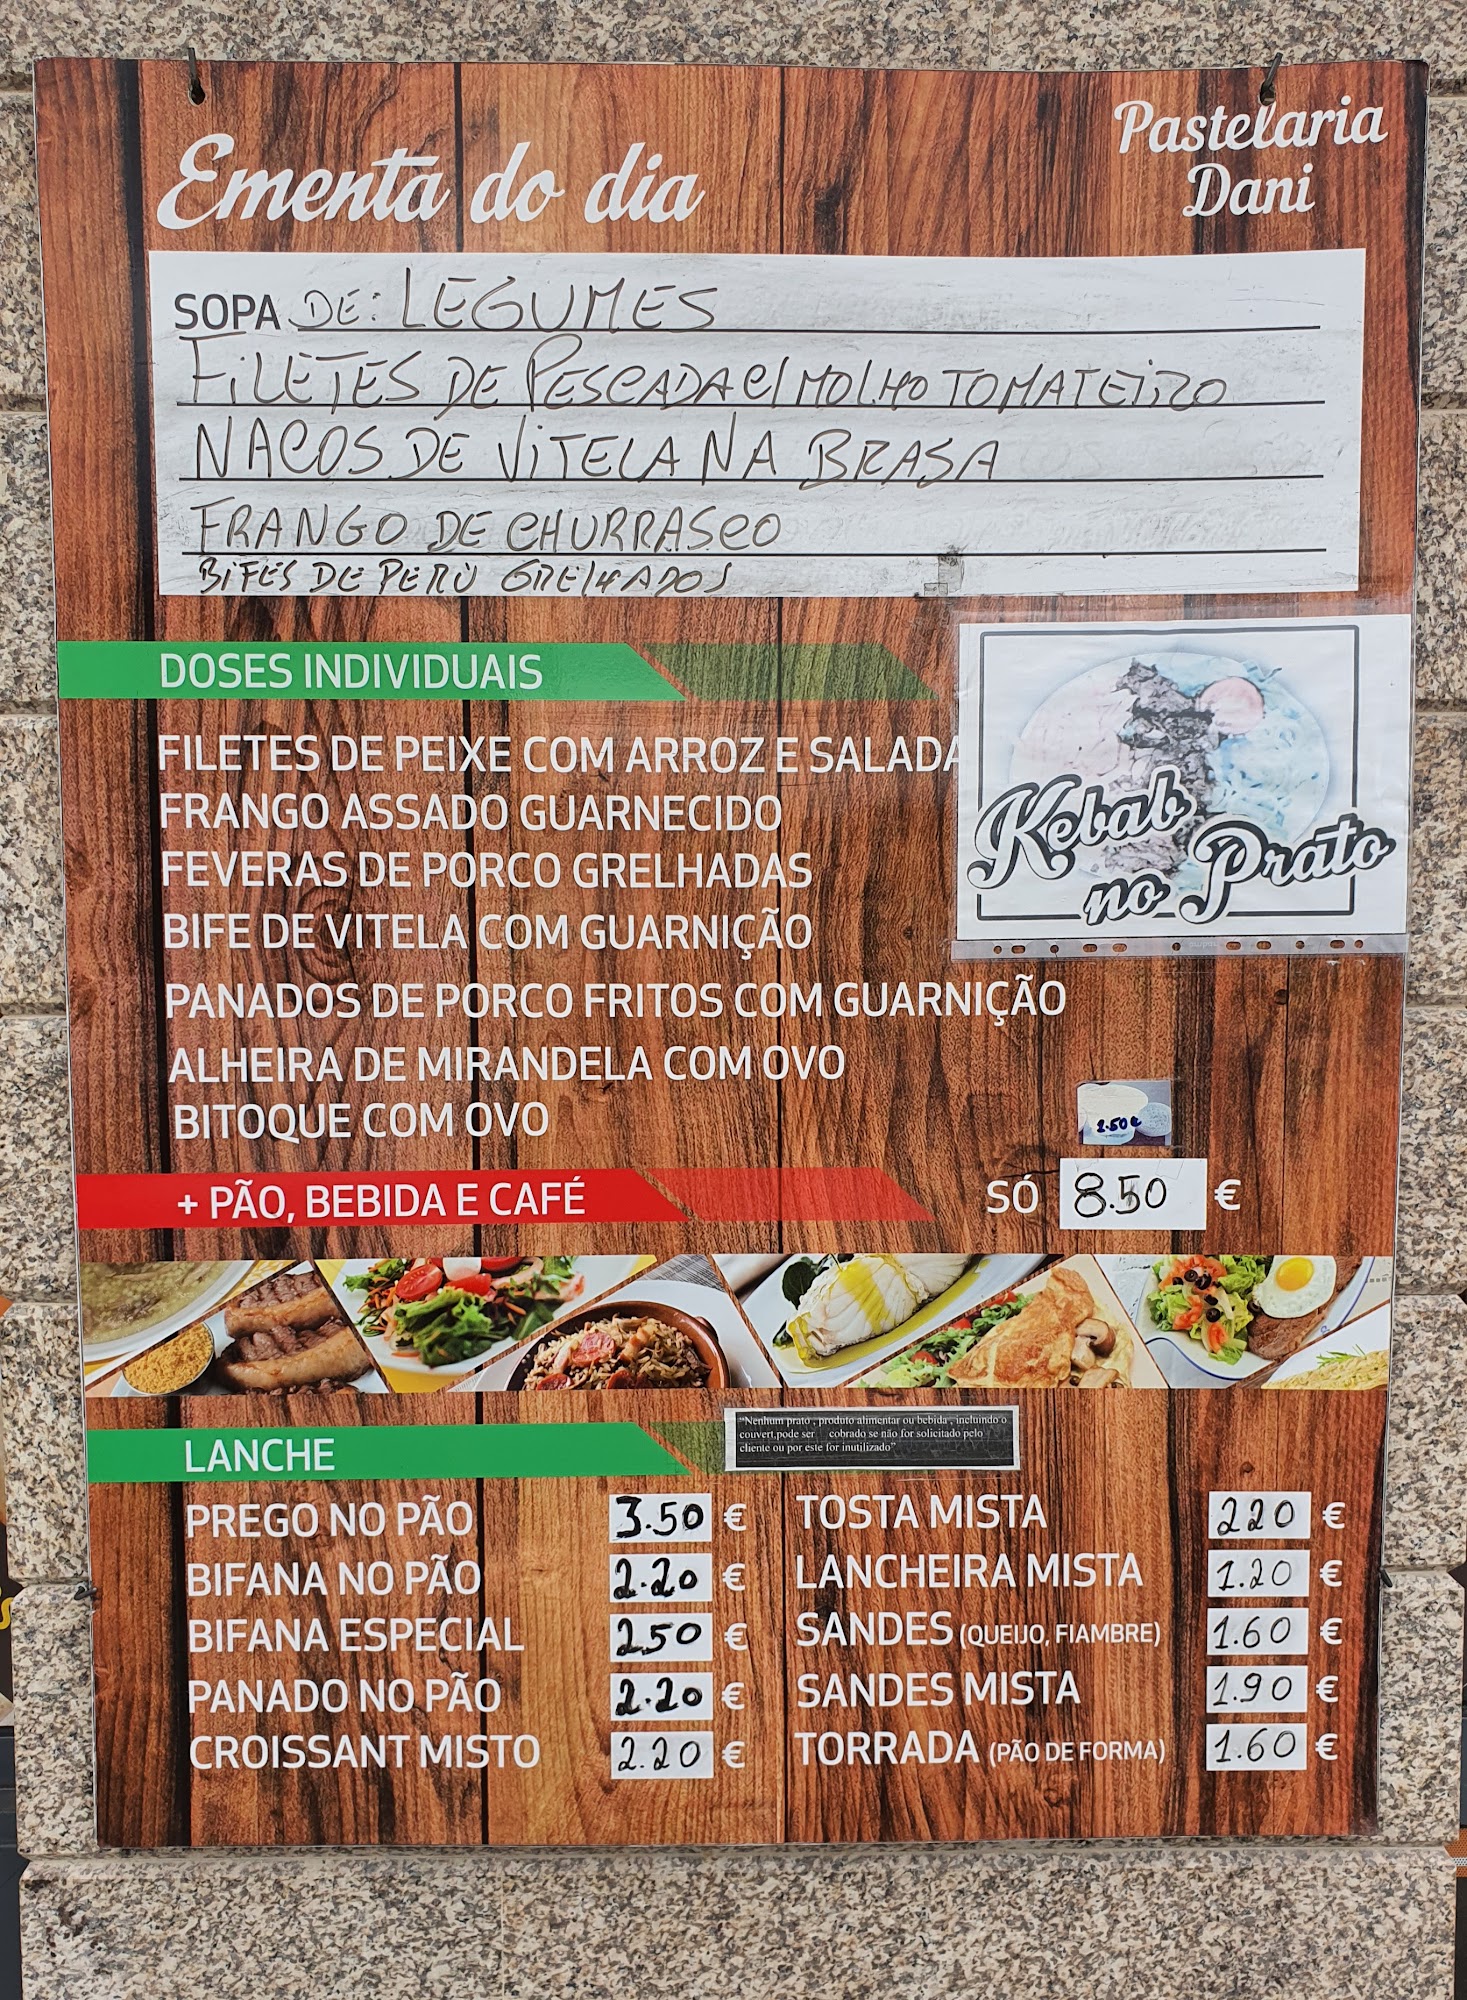 Ementa do dia
Pastelaria
Dani
SOPA DE: LEGUMES
FILETES DE PESCADA C/ MOLHO TOMATEIRO
NACOS DE VITELA NA BRASA
FRANGO DE CHURRASCO
BIFES DE PERÚ GRELHADOS
DOSES INDIVIDUAIS
FILETES DE PEIXE COM ARROZ E SALADA
FRANGO ASSADO GUARNECIDO
FEVERAS DE PORCO GRELHADAS
BIFE DE VITELA COM GUARNIÇÃO
PANADOS DE PORCO FRITOS COM GUARNIÇÃO
ALHEIRA DE MIRANDELA COM OVO
BITOQUE COM OVO
Kebab
no Prato
+ PÃO, BEBIDA E CAFÉ
SÓ 8.50 €
LANCHE
"Nenhum prato , produto alimentar ou bebida , incluindo o
couvert,pode ser cobrado se não for solicitado pelo
cliente ou por este for inutilizado"
PREGO NO PÃO 3.50 €
BIFANA NO PÃO 2.20 €
BIFANA ESPECIAL 2.50 €
PANADO NO PÃO 2.20 €
CROISSANT MISTO 2.20 €
TOSTA MISTA 220 €
LANCHEIRA MISTA 1.20 €
SANDES (QUEIJO, FIAMBRE) 1.60 €
SANDES MISTA 1.90 €
TORRADA (PÃO DE FORMA) 1.60 €